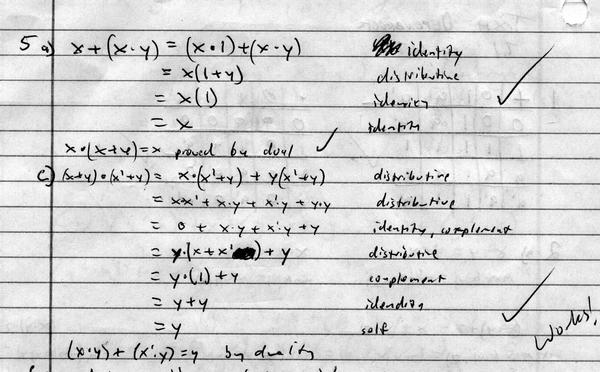 5 a) x+(x·y) = (x·1)+(x·y) identity
= x(1+y) distributive
= x(1) identity
= x identity
x·(x+y)=x proved by dual
c) (x+y)·(x'+y) = x·(x'+y) + y(x'+y) distributive
= x·x' + x·y + x'·y + y·y distributive
= 0 + x·y + x'·y + y identity, complement
= y·(x+x') + y distributive
= y·(1) + y complement
= y+y identity
= y self
Works!
(x·y) + (x'·y) = y by duality